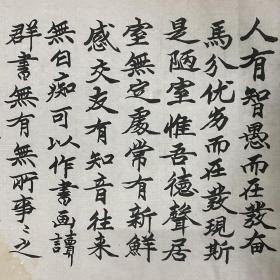 人有智愚而在發奋
馬分优劣而在發現斯
是陋室惟吾德聲居
室無定處常有新鮮
感交友有知音往来
無白痴可以作書画讀
群書無有無所事〻之